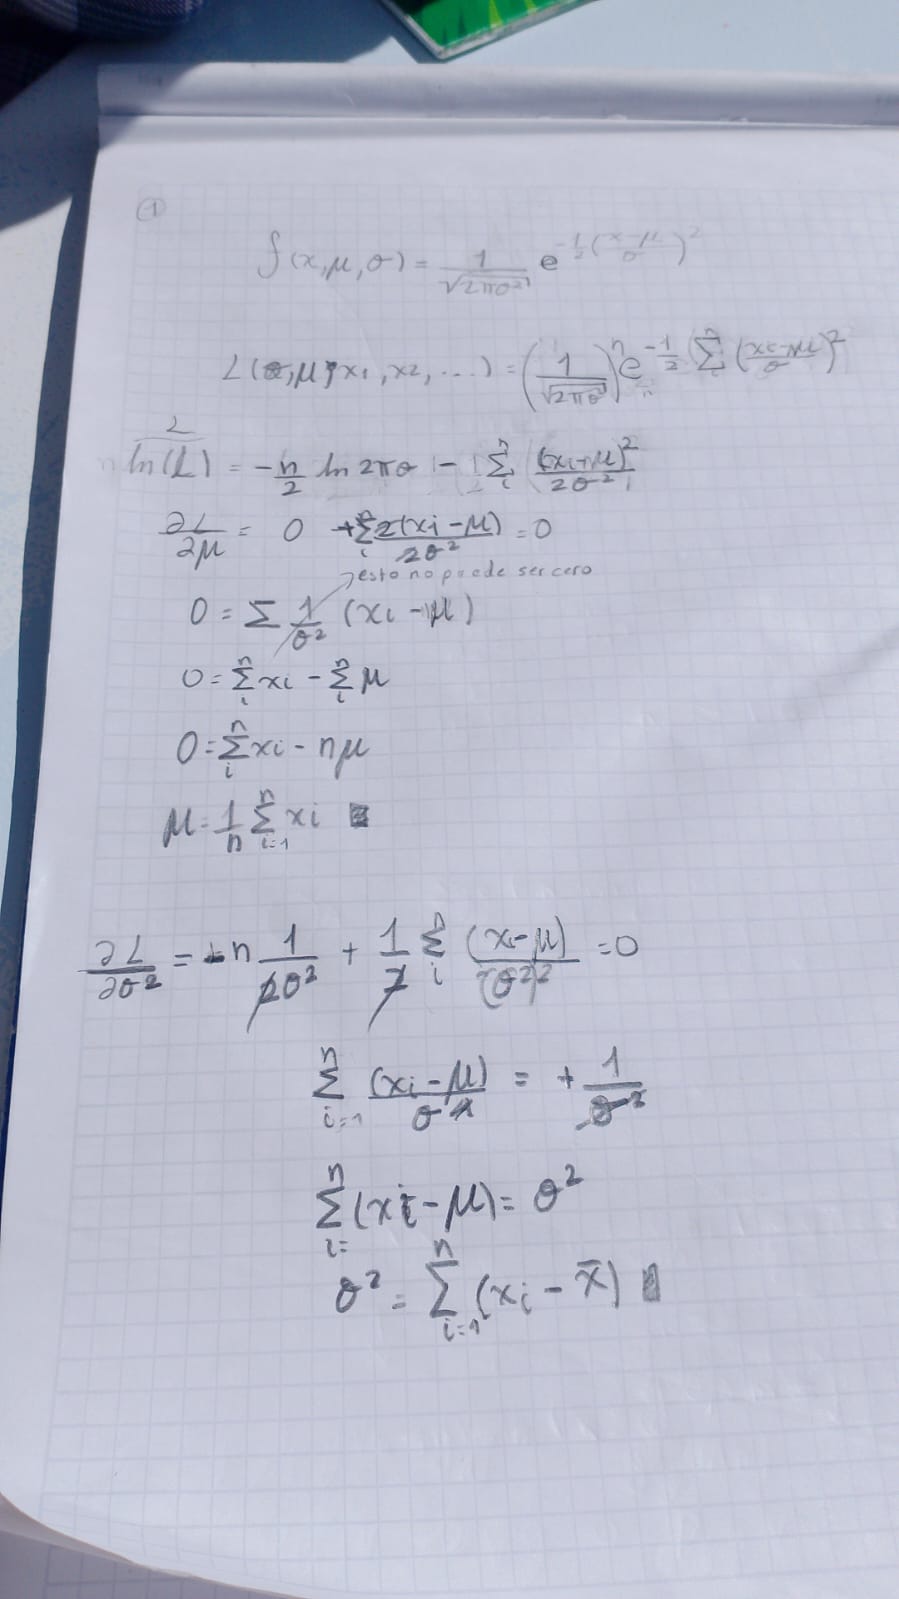 ①
f(x,μ,σ) = 1/√(2πσ²) e^(-1/2 ((x-μ)/σ)²)
L(σ,μ; x1, x2, ...) = (1/√(2πσ²))^n e^(-1/2 Σ_i^n ((xi-μ)/σ)²)
L
ln(L) = -n/2 ln 2πσ - Σ_i^n (xi-μ)²/2σ²
∂L/∂μ = 0 + Σ_i^n 2(xi-μ)/2σ² = 0
esto no puede ser cero
0 = Σ 1/σ² (xi-μ)
0 = Σ_i^n xi - Σ_i^n μ
0 = Σ_i^n xi - nμ
μ = 1/n Σ_{i=1}^n xi
∂L/∂σ² = -n 1/2σ² + 1/2 Σ_i^n (xi-μ)/(σ²)² = 0
Σ_{i=1}^n (xi-μ)/σ⁴ = + 1/σ²
Σ_{i=}^n (xi-μ) = σ²
σ² = Σ_{i=1}^n (xi - x̄)